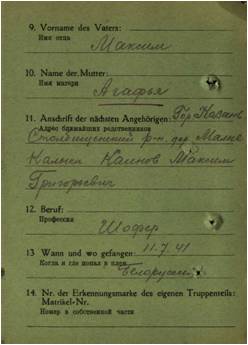 9. Vorname des Vaters:
Имя отца
Максим
10. Name der Mutter:
Имя матери
Агафья
11. Anschrift der nächsten Angehörigen: Гор Казань
Адрес ближайших родственников
Столбищенский р-н. дер Малые
Максим
Григорьевич
12. Beruf:
Профессия
Шофер
13 Wann und wo gefangen: 11.7.41
Когда и где попал в плен
Белоруссия
14. Nr. der Erkennungsmarke des eigenen Truppenteils:
Matrikel-Nr.
Номер в собственной части